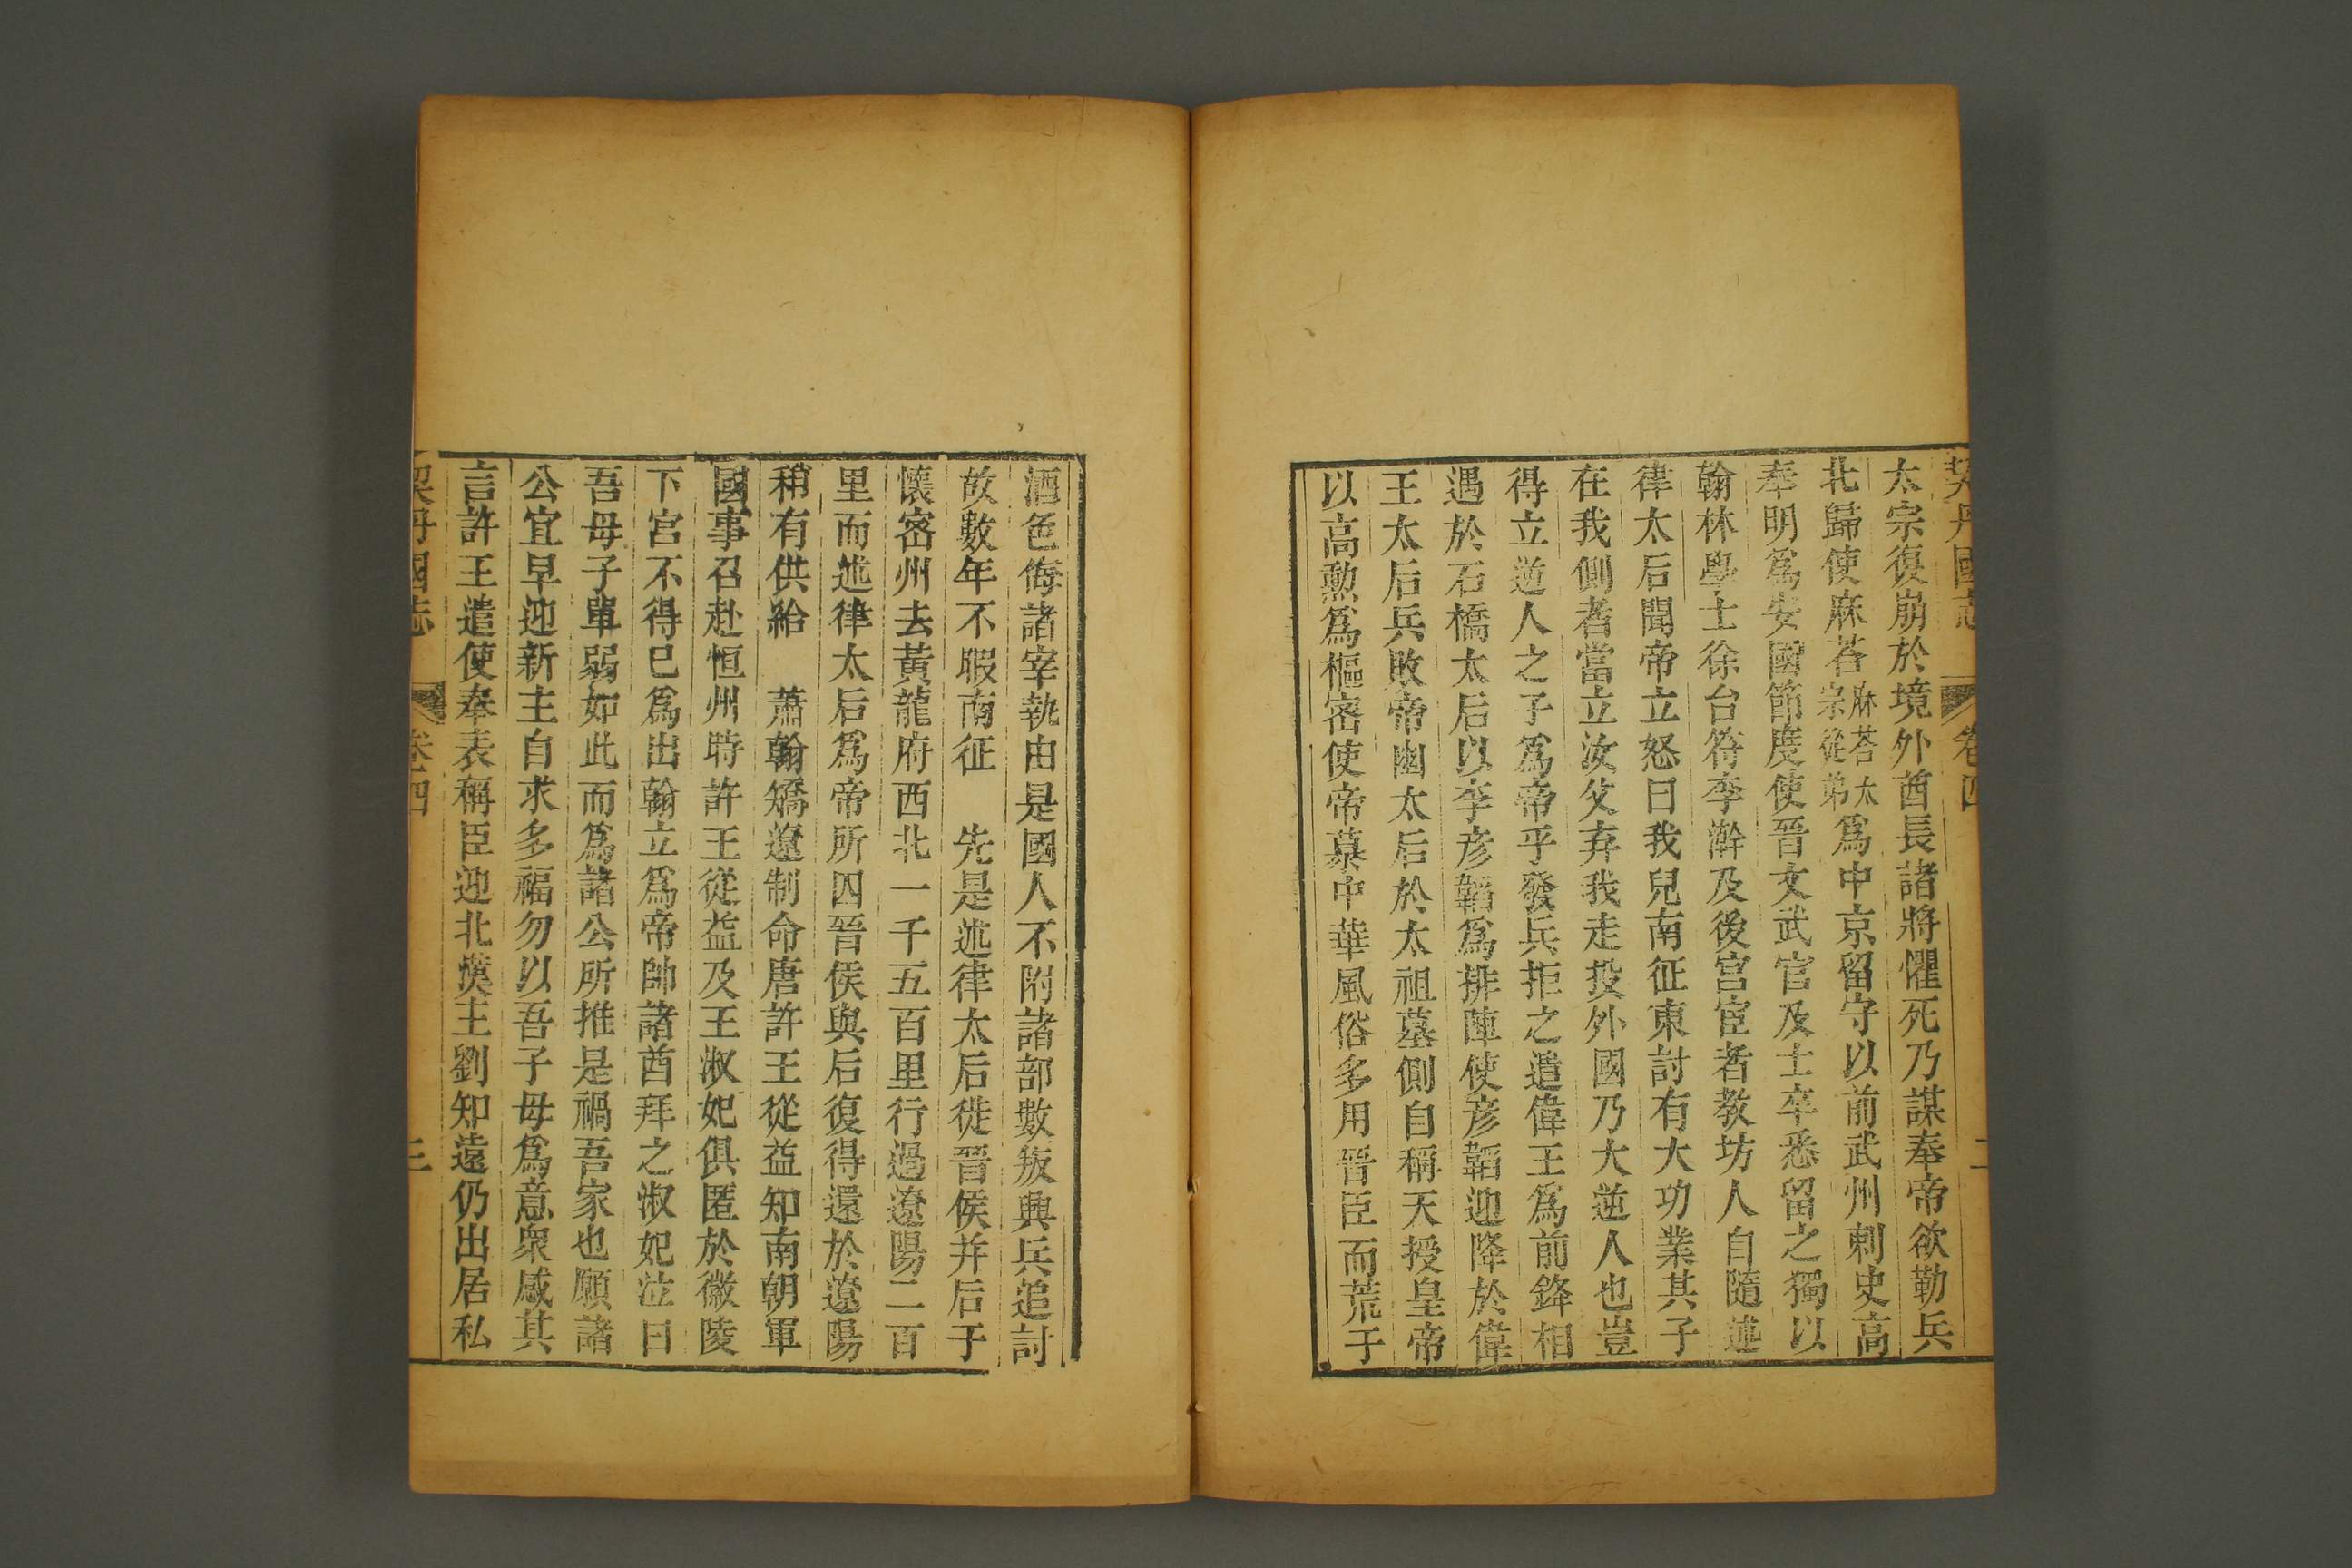 契丹國志 卷四 二
太宗復崩於境外酋長諸將懼死乃謀奉帝欲勒兵
北歸使麻荅麻荅太宗從弟爲中京留守以前武州刺史高
奉明爲安國節度使晉文武官及士卒悉留之獨以
翰林學士徐台符李澣及後宮宦者教坊人自隨述
律太后聞帝立怒曰我兒南征東討有大功業其子
在我側者當立汝父弃我走投外國乃大逆人也豈
得立逆人之子爲帝乎發兵拒之遣偉王爲前鋒相
遇於石橋太后以李彦韜爲排陣使彦韜迎降於偉
王太后兵敗帝幽太后於太祖墓側自稱天授皇帝
以高勲爲樞密使帝慕中華風俗多用晉臣而荒于
酒色侮諸宰執由是國人不附諸部數叛興兵追討
故數年不暇南征 先是述律太后徙晉侯并后于
懷密州去黃龍府西北一千五百里行過遼陽二百
里而述律太后爲帝所囚晉侯與后復得還於遼陽
稍有供給 蕭翰矯遼制命唐許王從益知南朝軍
國事召赴恒州時許王從益及王淑妃俱匿於徽陵
下宮不得已爲出翰立爲帝帥諸酋拜之淑妃泣曰
吾母子單弱如此而爲諸公所推是禍吾家也願諸
公宜早迎新主自求多福勿以吾子母爲意衆感其
言許王遣使奉表稱臣迎北漢主劉知遠仍出居私
契丹國志 卷四 三